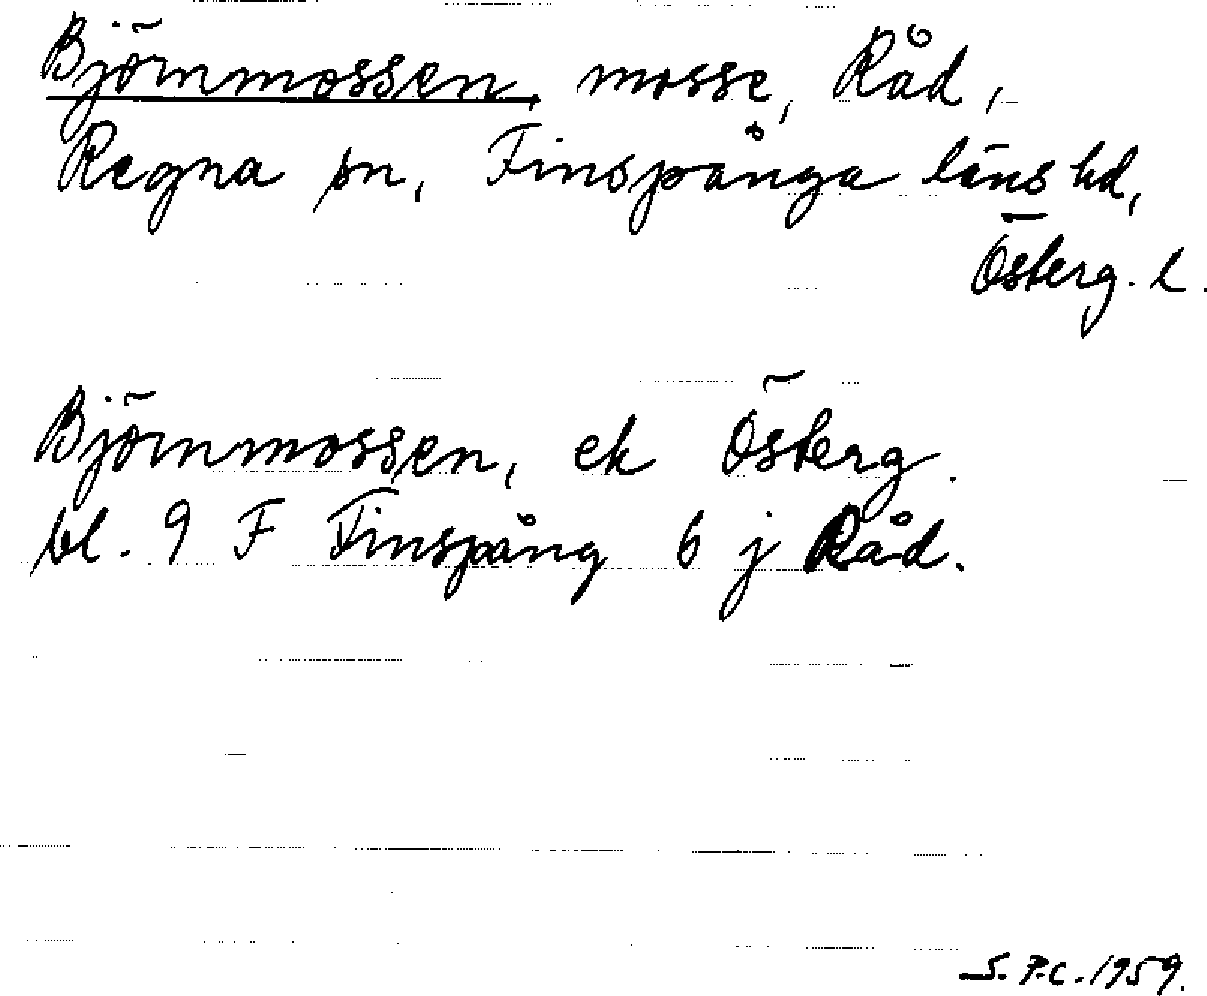 Björnmossen, mosse, Råd,
Regna sn, Finspånga läns hd,
Österg. l.
Björnmossen, ek Österg.
bl. 9 F Finspång 6 j Råd.
S. P.C. 1959.